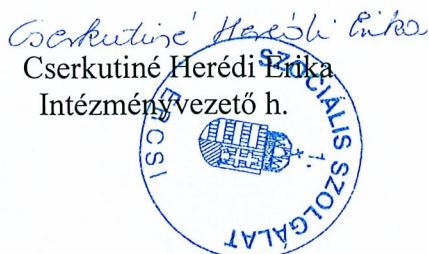 Cserkutiné Herédi Erika
Cserkutiné Herédi Erika
Intézményvezető h.
SZOCIÁLIS SZOLGÁLAT
ERCSI
1.